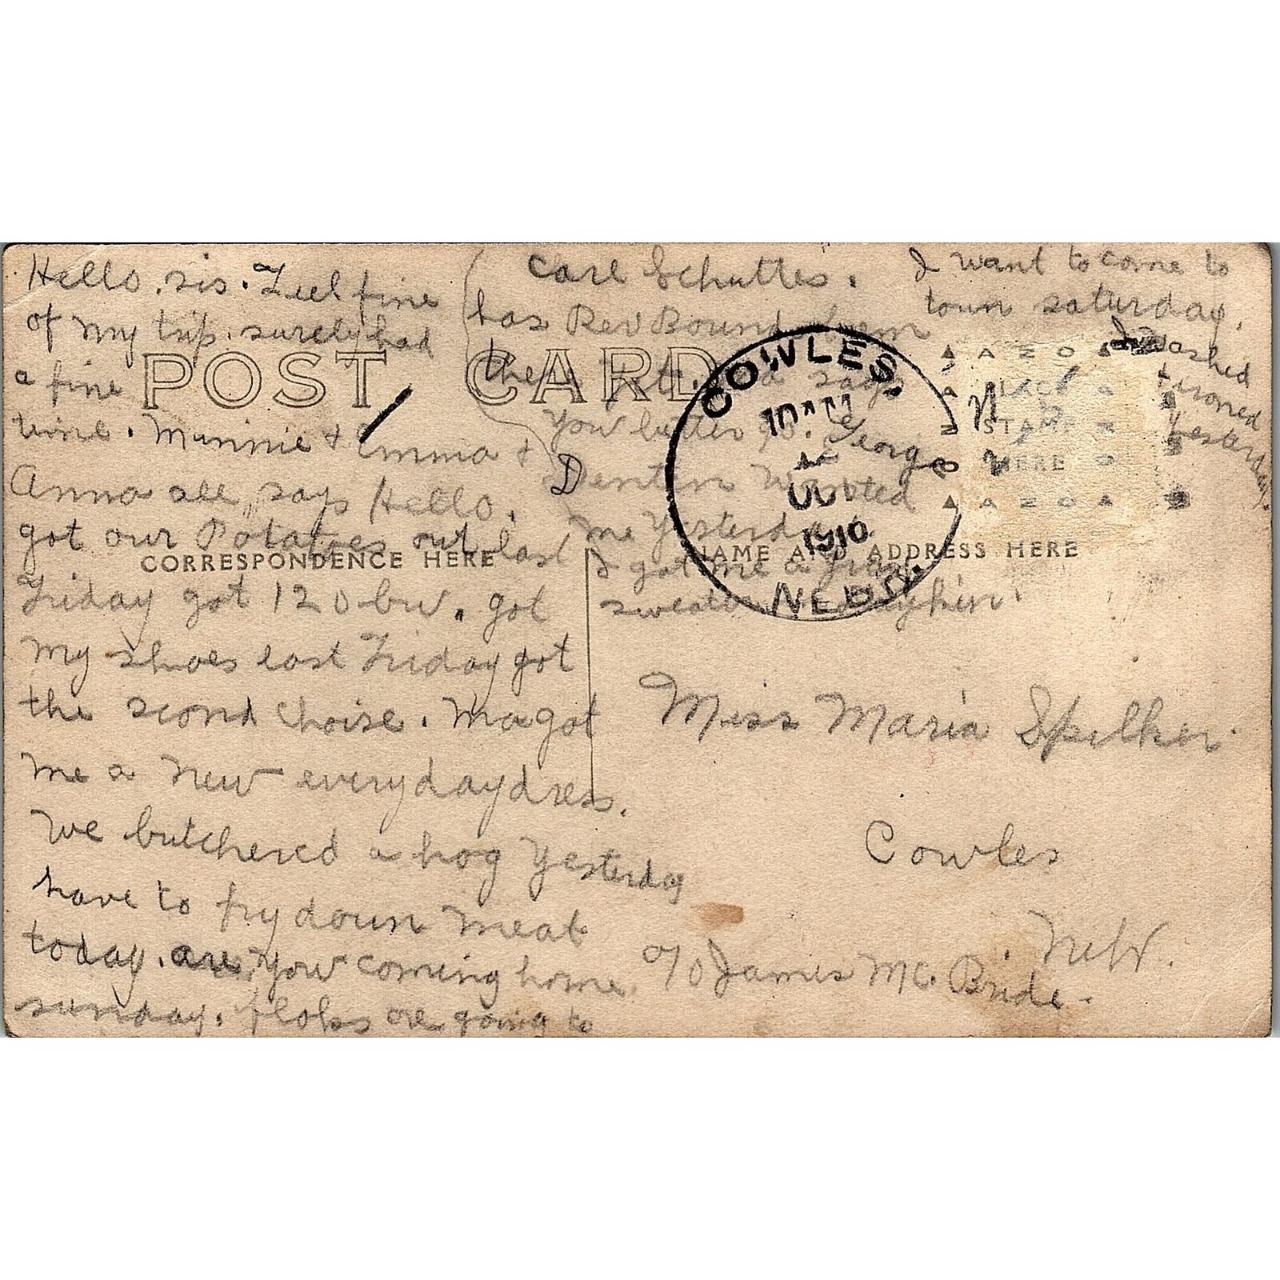 Hello, sis. Feel fine
of my trip. surely had
a fine
time. Minnie + Emma +
Anna all, says Hello.
got our Potatoes out last
Friday got 120 bu. got
my shoes last Friday got
the scond choise. Ma got
me a new everyday dress.
We butchered a hog Yesterday
have to fry down meat
today. are, you coming home
sunday. floks are going to
Carl Schuttes.
has Rev Bound
the says
You better go. George
Denten Wanted
me Yesterday
I got me a
sweater
I want to come to
town saturday.
I washed
+ ironed
yesterday.
POST CARD
CORRESPONDENCE HERE
NAME AND ADDRESS HERE
AZO
PLACE
STAMP
HERE
AZO
COWLES,
10 AM
OCT
1910
NEBR.
Miss Maria Spilker
Cowles
Nebr.
c/o James Mc. Bride.